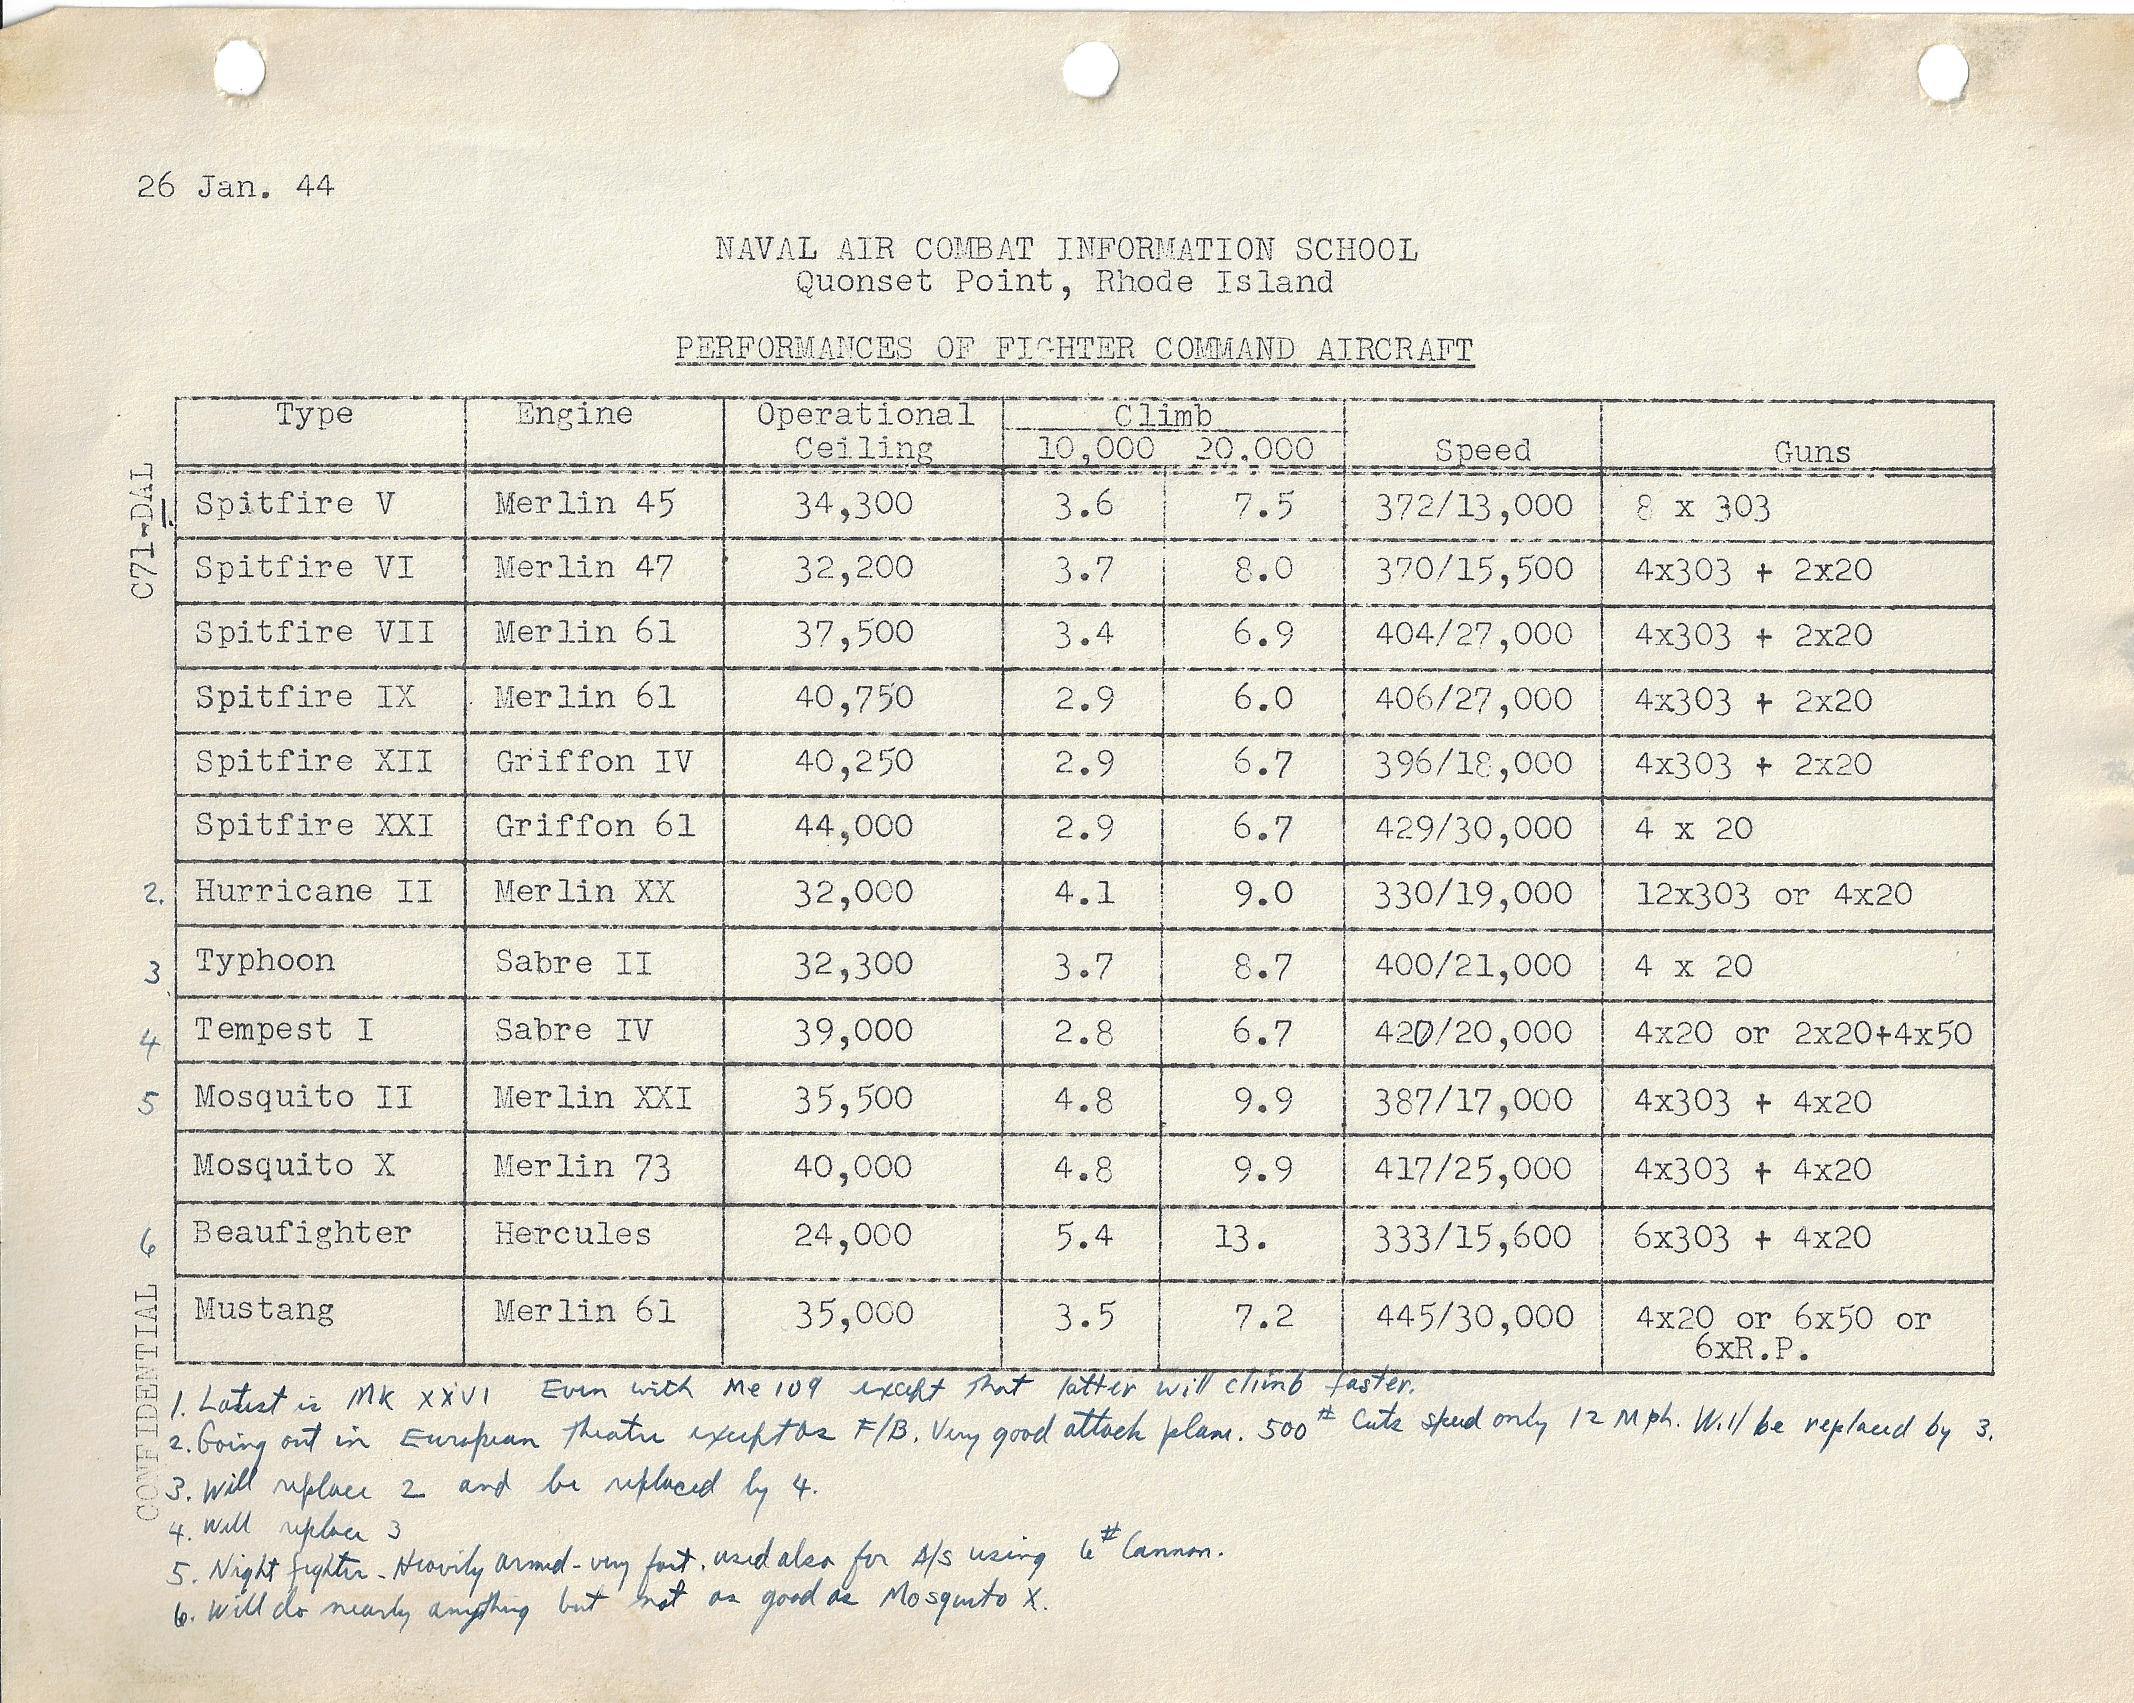 26 Jan. 44
NAVAL AIR COMBAT INFORMATION SCHOOL
Quonset Point, Rhode Island
PERFORMANCES OF FIGHTER COMMAND AIRCRAFT
C71-DAL
CONFIDENTIAL
Type Engine Operational Ceiling Climb 10,000 20,000 Speed Guns
1. Spitfire V Merlin 45 34,300 3.6 7.5 372/13,000 8 x 303
Spitfire VI Merlin 47 32,200 3.7 8.0 370/15,500 4x303 + 2x20
Spitfire VII Merlin 61 37,500 3.4 6.9 404/27,000 4x303 + 2x20
Spitfire IX Merlin 61 40,750 2.9 6.0 406/27,000 4x303 + 2x20
Spitfire XII Griffon IV 40,250 2.9 6.7 396/18,000 4x303 + 2x20
Spitfire XXI Griffon 61 44,000 2.9 6.7 429/30,000 4 x 20
2. Hurricane II Merlin XX 32,000 4.1 9.0 330/19,000 12x303 or 4x20
3 Typhoon Sabre II 32,300 3.7 8.7 400/21,000 4 x 20
4 Tempest I Sabre IV 39,000 2.8 6.7 420/20,000 4x20 or 2x20+4x50
5 Mosquito II Merlin XXI 35,500 4.8 9.9 387/17,000 4x303 + 4x20
Mosquito X Merlin 73 40,000 4.8 9.9 417/25,000 4x303 + 4x20
6 Beaufighter Hercules 24,000 5.4 13. 333/15,600 6x303 + 4x20
Mustang Merlin 61 35,000 3.5 7.2 445/30,000 4x20 or 6x50 or
6xR.P.
1. Latest is MK XXVI Even with Me 109 except that latter will climb faster.
2. Going out in European Theatre except as F/B. Very good attack plane. 500# Cuts speed only 12 Mph. Will be replaced by 3.
3. Will replace 2 and be replaced by 4.
4. Will replace 3
5. Night fighter - Heavily armed - very fast. used also for A/S using 6# Cannon.
6. Will do nearly anything but not as good as Mosquito X.